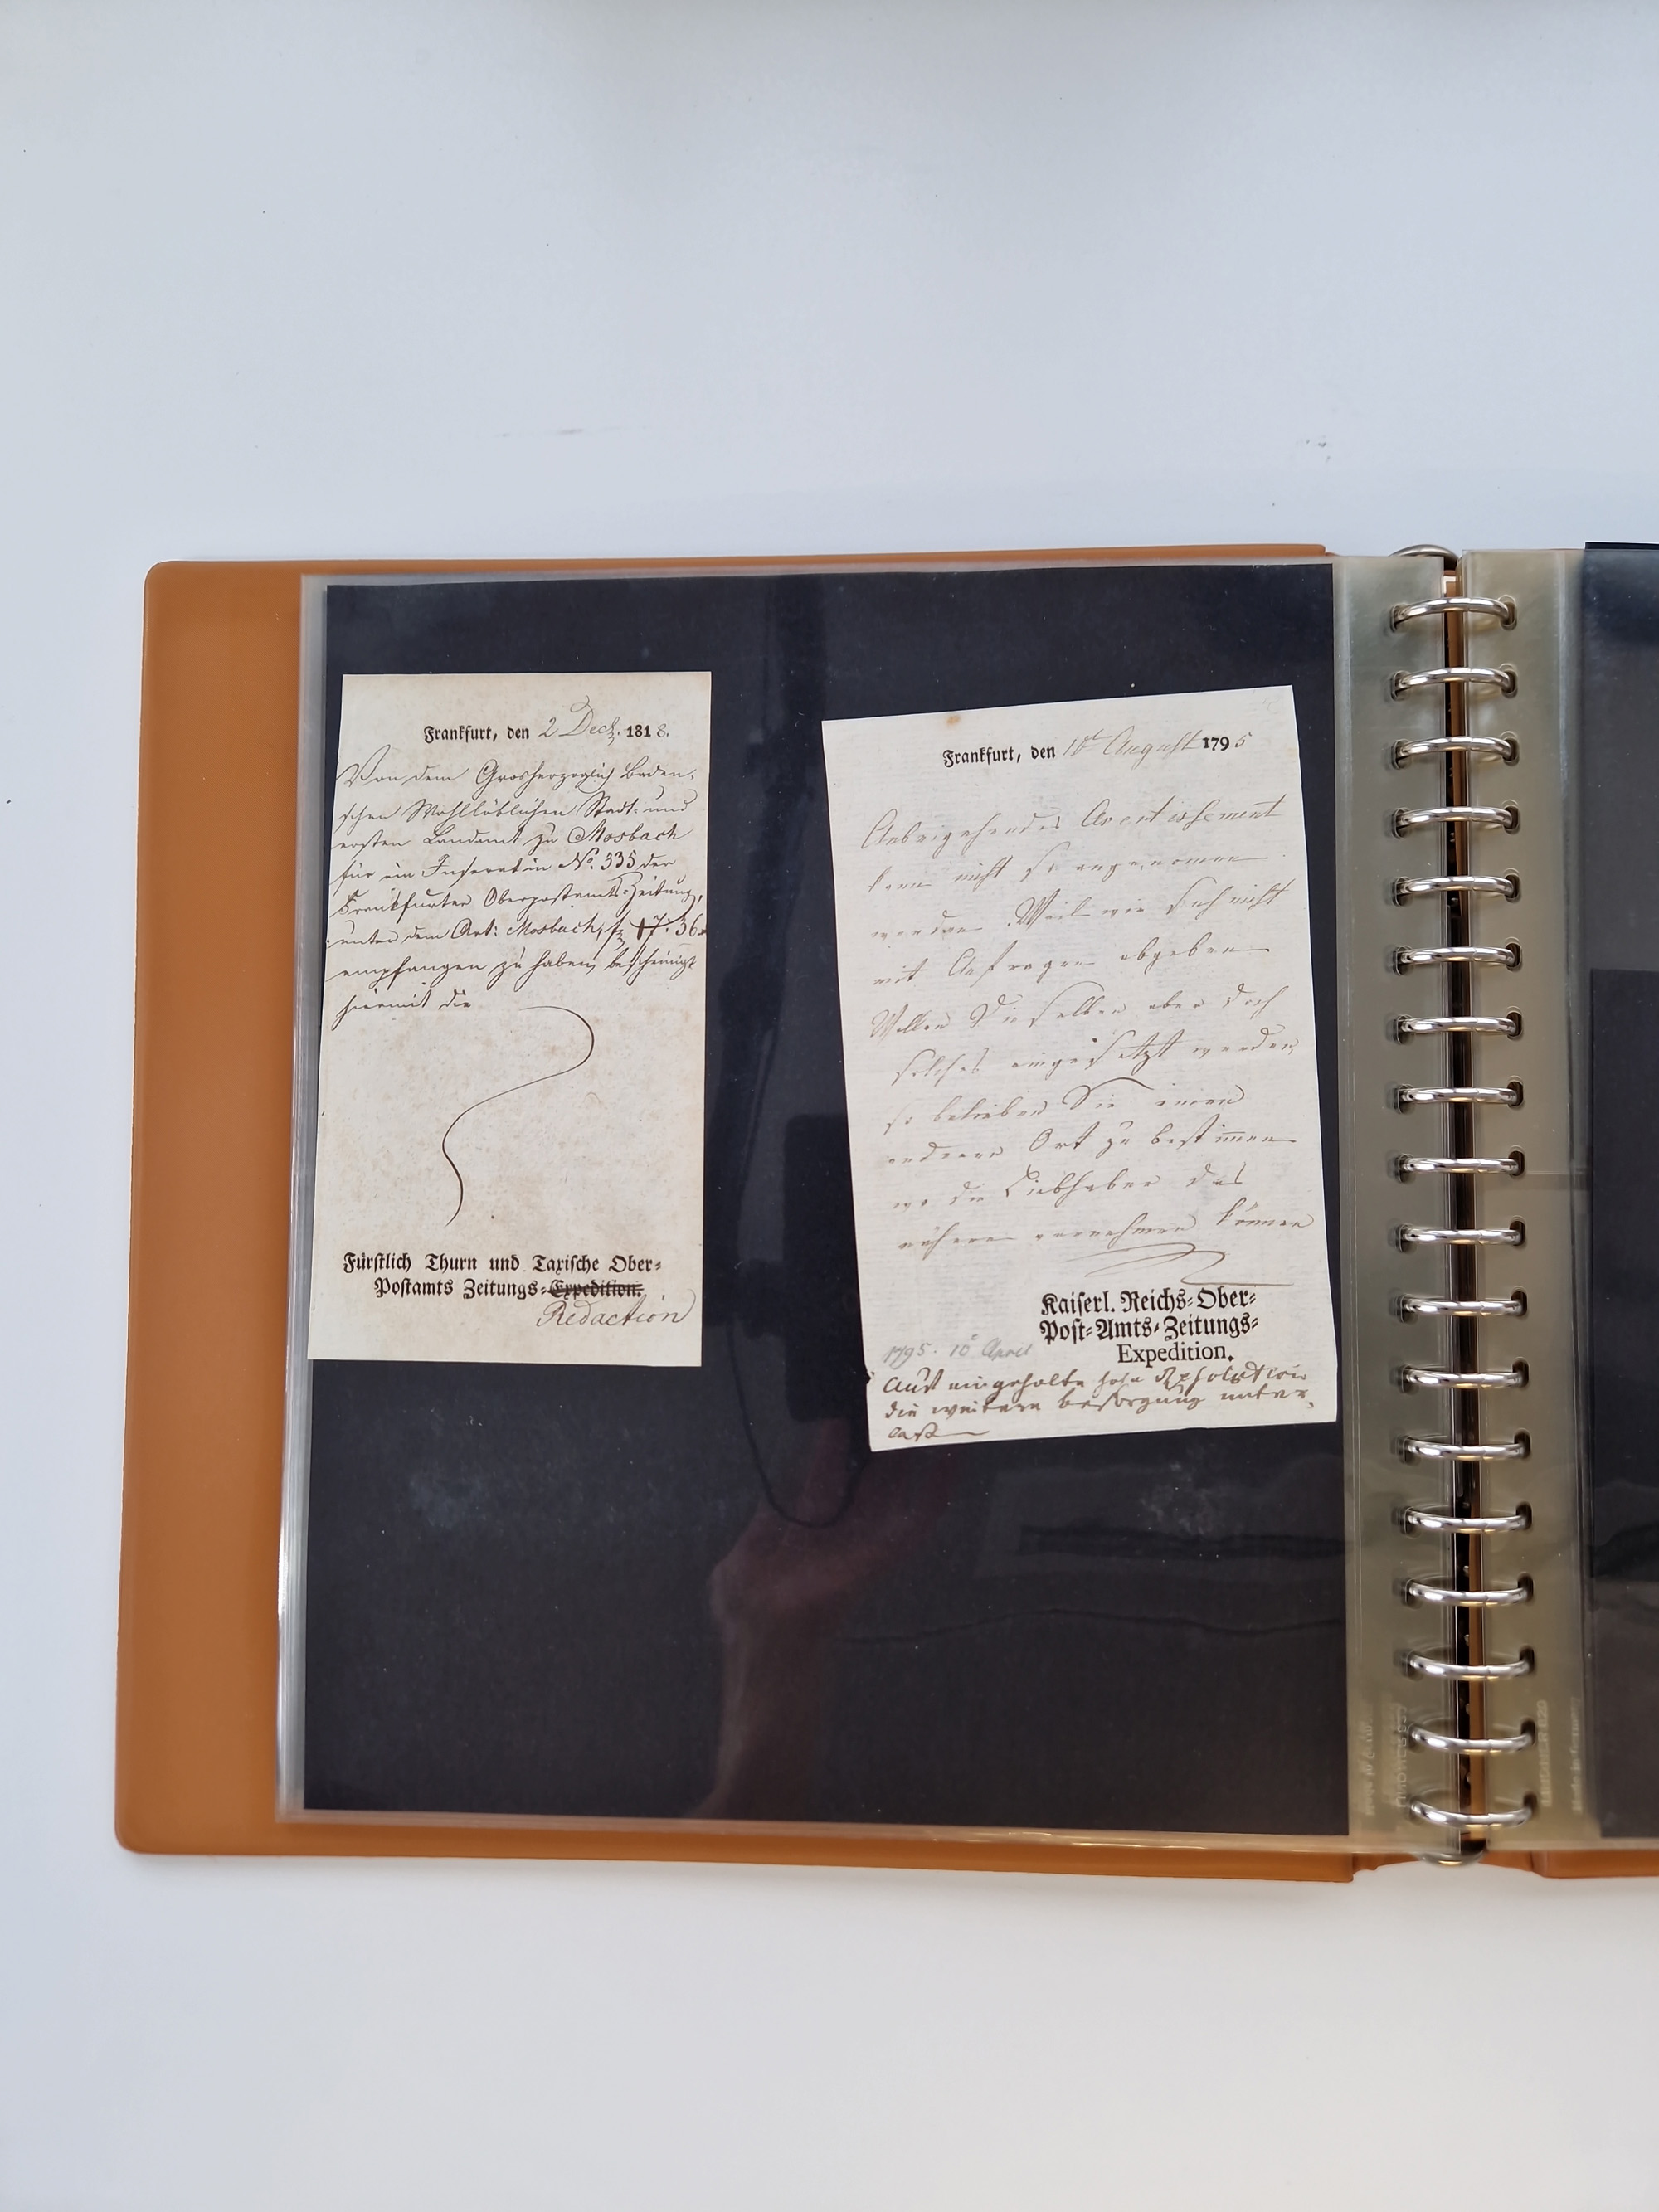 Frankfurt, den 2 Decb. 1818.
Von dem Grosherzoglich Baden-
schen Wohllöblichen Stadt- und
ersten Landamt zu Mosbach
für ein Inserat in No. 335 der
Frankfurter Oberpostamts-Zeitung,
unter dem Art: Mosbach, f 7: 36
empfangen zu haben, bescheinigt
hiermit die
Fürstlich Thurn und Taxische Ober-
Postamts Zeitungs-Expedition.
Redaction
Frankfurt, den 10t August 1795
Avertissement
kann nicht so angenommen
werden. Weil wir sich nicht
mit Anfragen abgeben
Wollen Dieselben aber doch
solches eingesetzt werden,
so belieben Sie einen
anderen Ort zu bestimmen
wo die Liebhaber das
nähere vernehmen können
Kaiserl. Reichs-Ober-
Post-Amts-Zeitungs-
Expedition.
1795. 10 April
Auf eingeholte hohe Resolution
die weitere besorgung unter-